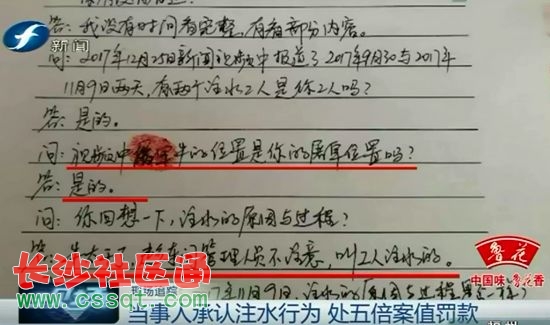 新闻
答：我没有时间看完整，有看部分内容。
问：2017年12月25日新闻视频中报道了2017年9月30与2017年
11月9日两天，有两个注水工人是你工人吗？
答：是的。
问：视频中屠宰牛的位置是你的屠宰位置吗？
答：是的。
问：你回想一下，注水的原因与过程？
管理人员不注意，叫工人注水的。
年11月9日，注水的
鲁花
中国味·鲁花香
长沙社区通
www.cssqt.com
现场追踪
当事人承认注水行为 处五倍案值罚款